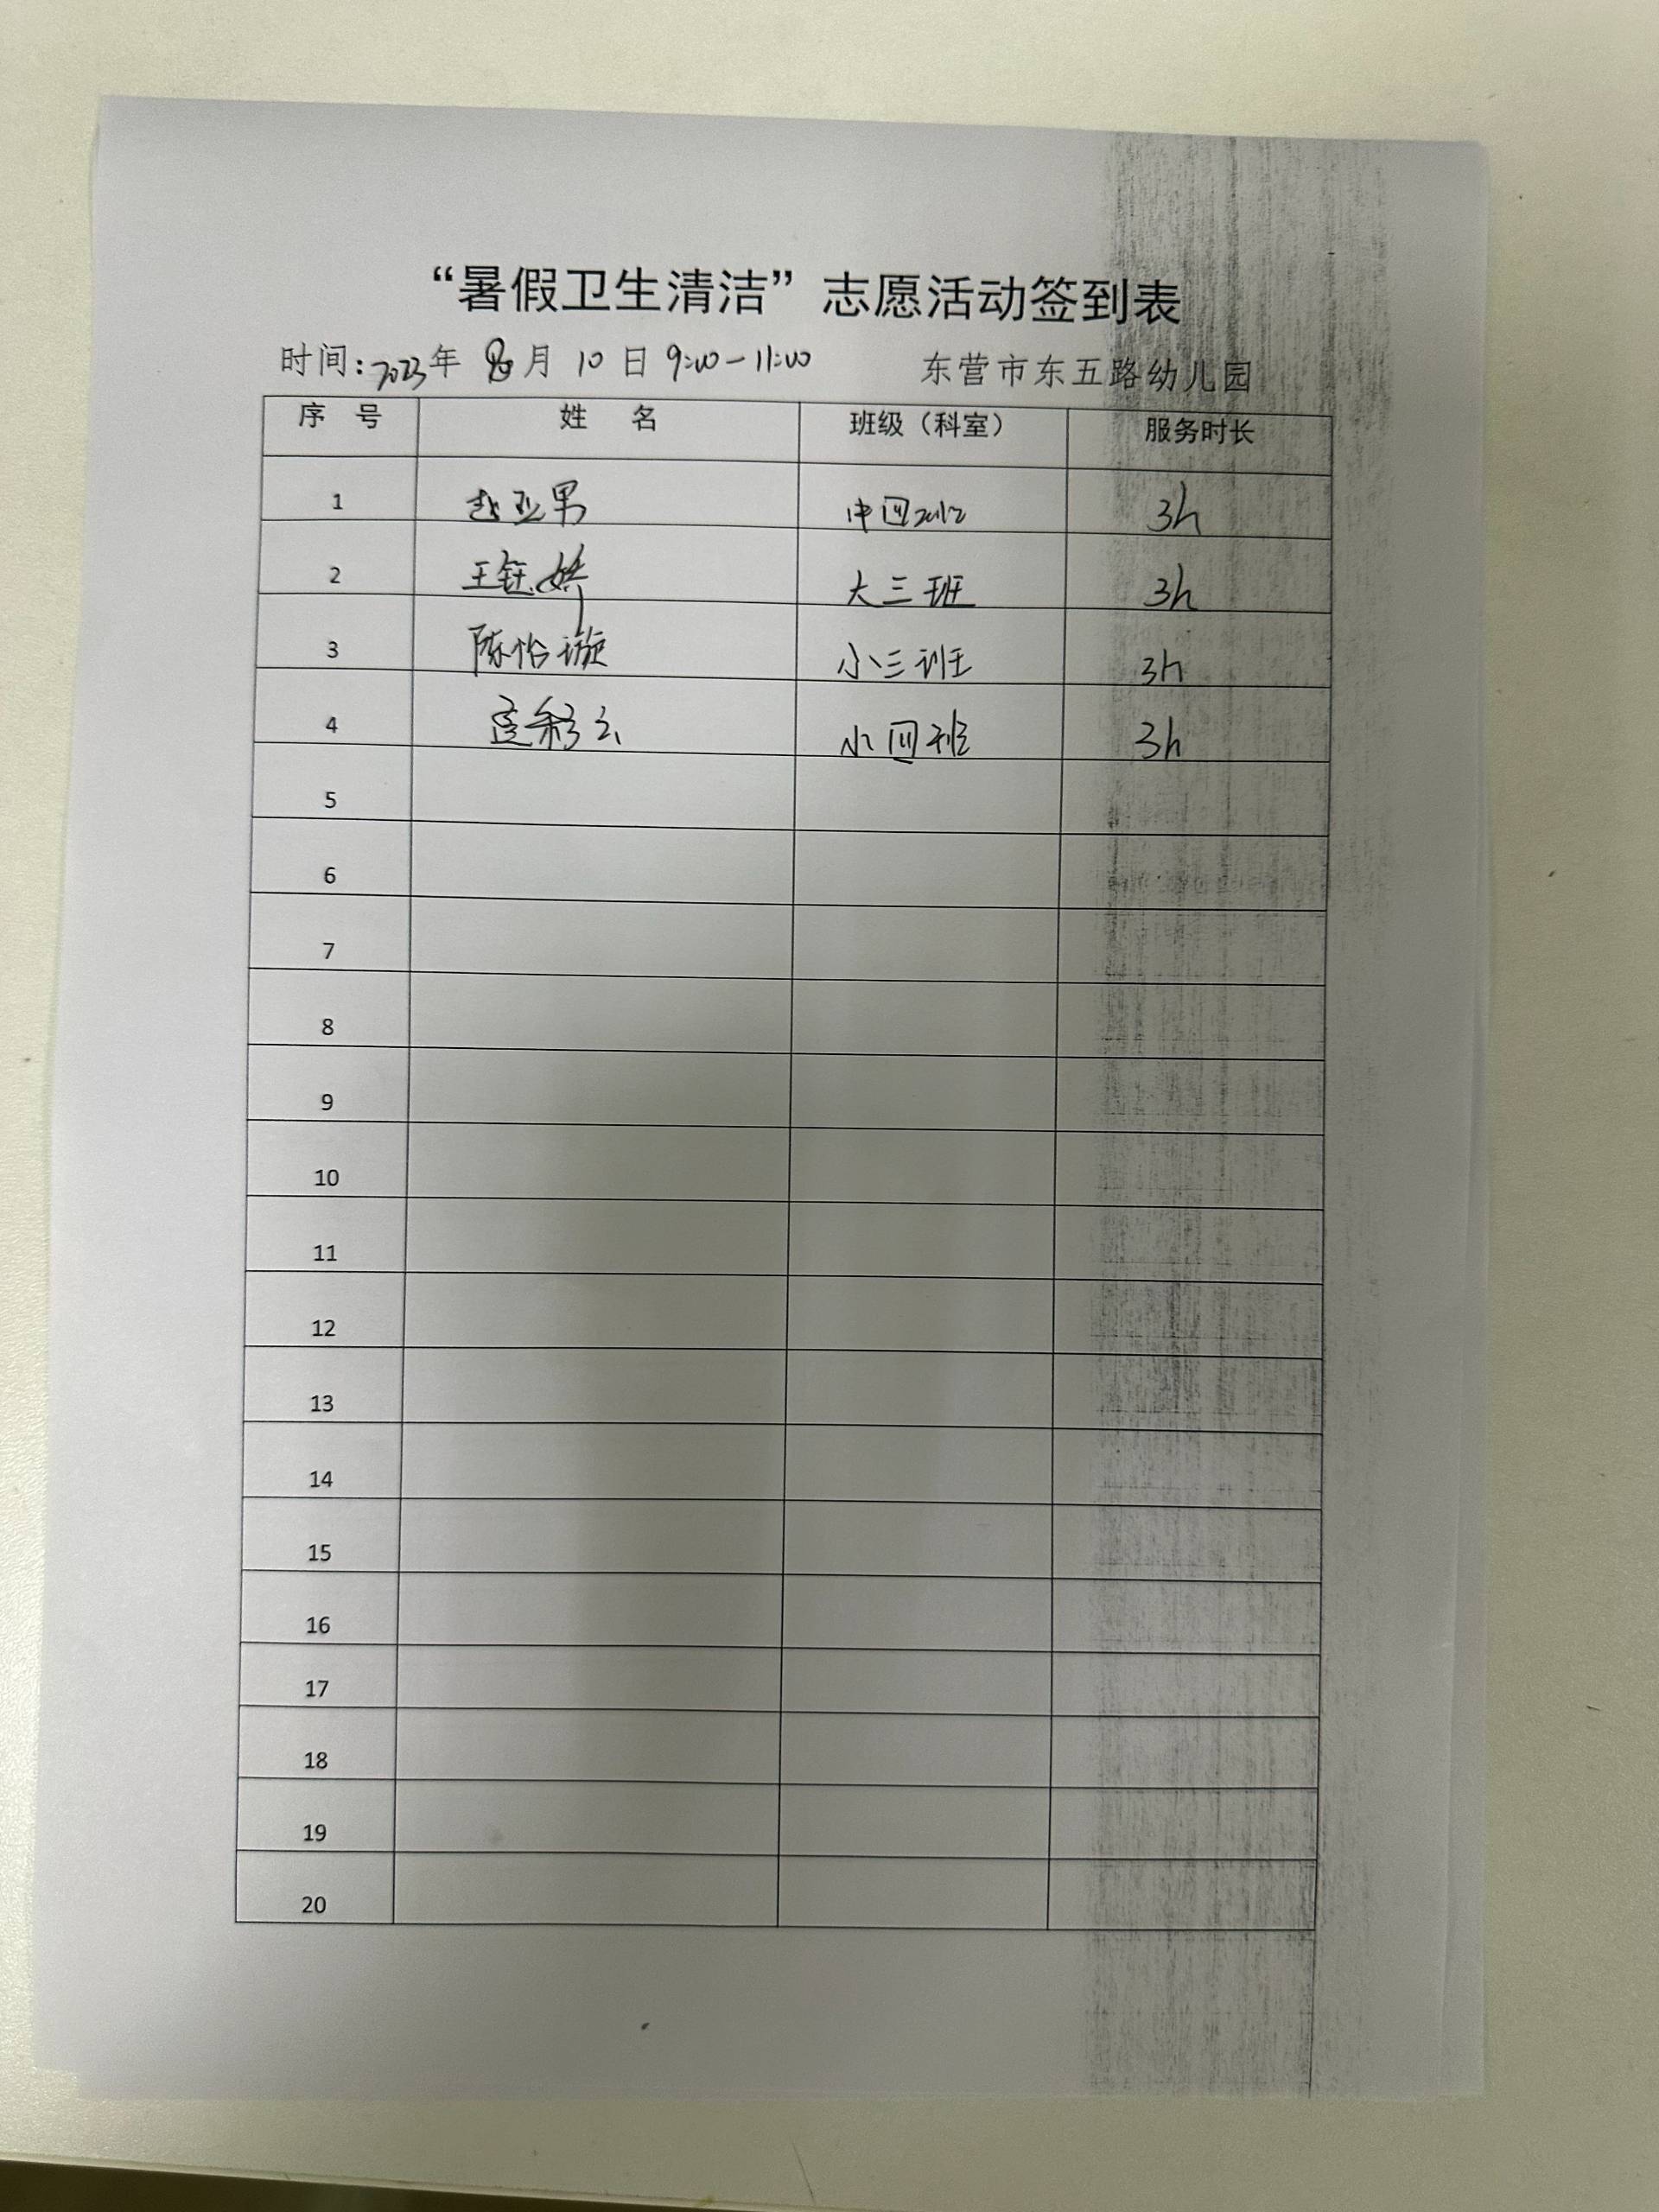 “暑假卫生清洁”志愿活动签到表
时间:2023年 8月 10日 9:00-11:00 东营市东五路幼儿园
序 号 姓 名 班级（科室） 服务时长
1 赵亚男 中四班 3h
2 王钰婷 大三班 3h
3 陈怡璇 小三班 3h
4 彩云 小四班 3h
5
6
7
8
9
10
11
12
13
14
15
16
17
18
19
20